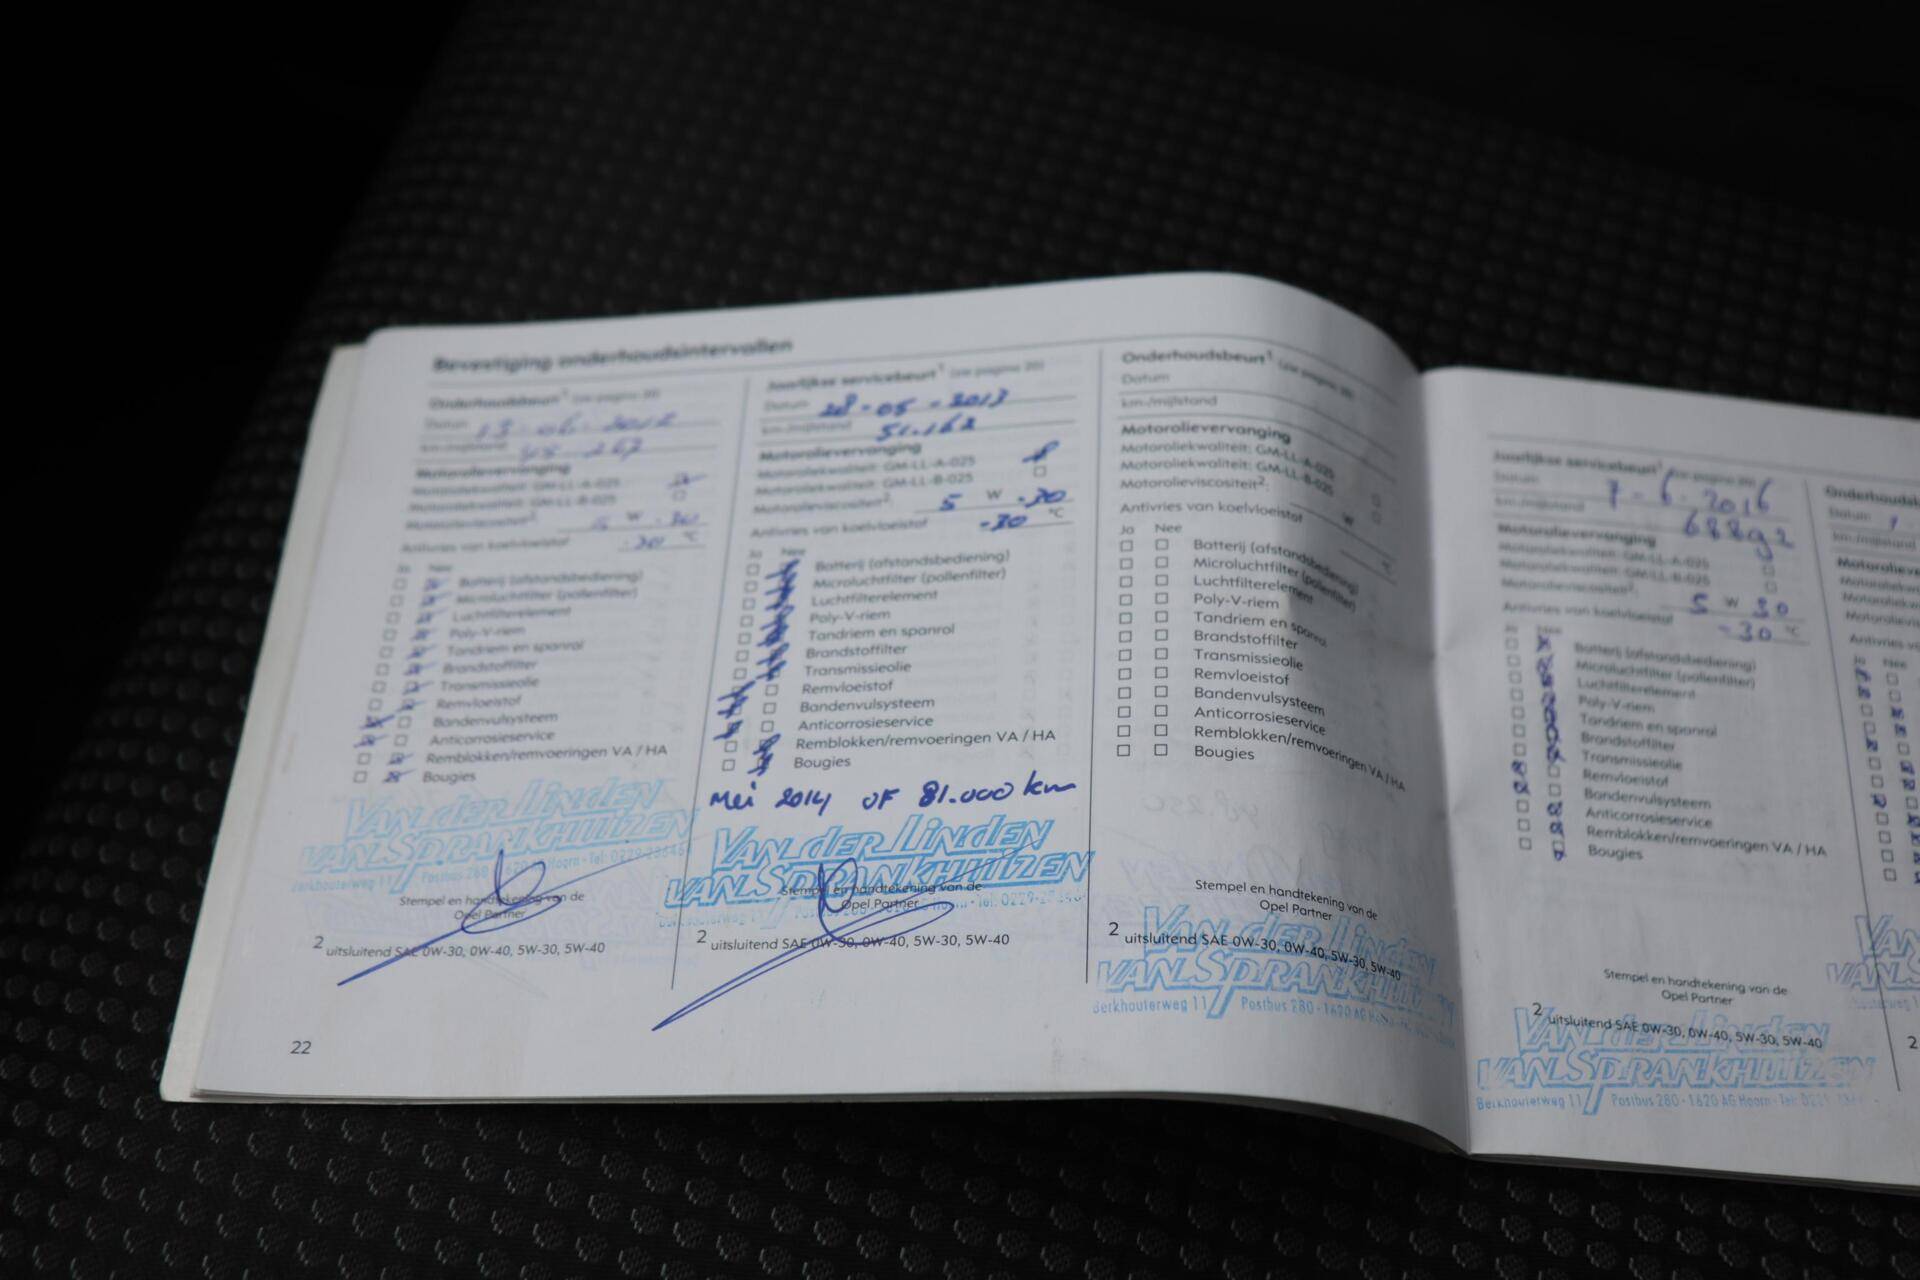 Bevestiging onderhoudsintervallen
Onderhoudsbeurt¹ (zie pagina 20)
Datum 13-06-2012
km-/mijlstand 45.267
Motorolievervanging
Motoroliekwaliteit: GM-LL-A-025
Motoroliekwaliteit: GM-LL-B-025
Motorolieviscositeit²: 5 W -30
Antivries van koelvloeistof -30 °C
Ja Nee
Batterij (afstandsbediening)
Microluchtfilter (pollenfilter)
Luchtfilterelement
Poly-V-riem
Tandriem en spanrol
Brandstoffilter
Transmissieolie
Remvloeistof
Bandenvulsysteem
Anticorrosieservice
Remblokken/remvoeringen VA / HA
Bougies
Van der Linden
van Sprankhuizen
Berkhouterweg 11 Postbus 280 - 1620 AG Hoorn - Tel: 0229-
Stempel en handtekening van de
Opel Partner
2 uitsluitend SAE 0W-30, 0W-40, 5W-30, 5W-40
22
Jaarlijkse servicebeurt¹ (zie pagina 20)
Datum 28-05-2013
km-/mijlstand 51.162
Motorolievervanging
Motoroliekwaliteit: GM-LL-A-025
Motoroliekwaliteit: GM-LL-B-025
Motorolieviscositeit²: 5 W -30
Antivries van koelvloeistof -30 °C
Ja Nee
Batterij (afstandsbediening)
Microluchtfilter (pollenfilter)
Luchtfilterelement
Poly-V-riem
Tandriem en spanrol
Brandstoffilter
Transmissieolie
Remvloeistof
Bandenvulsysteem
Anticorrosieservice
Remblokken/remvoeringen VA / HA
Bougies
Mei 2014 OF 81.000 km
Van der Linden
van Sprankhuizen
Stempel en handtekening van de
Opel Partner
2 uitsluitend SAE 0W-30, 0W-40, 5W-30, 5W-40
Onderhoudsbeurt¹ (zie pagina 20)
Datum
km-/mijlstand
Motorolievervanging
Motoroliekwaliteit: GM-LL-A-025
Motoroliekwaliteit: GM-LL-B-025
Motorolieviscositeit²: W
Antivries van koelvloeistof °C
Ja Nee
Batterij (afstandsbediening)
Microluchtfilter (pollenfilter)
Luchtfilterelement
Poly-V-riem
Tandriem en spanrol
Brandstoffilter
Transmissieolie
Remvloeistof
Bandenvulsysteem
Anticorrosieservice
Remblokken/remvoeringen VA / HA
Bougies
Stempel en handtekening van de
Opel Partner
2 uitsluitend SAE 0W-30, 0W-40, 5W-30, 5W-40
Van der Linden
van Sprankhuizen
Berkhouterweg 11 Postbus 280 - 1620 AG Hoorn
Jaarlijkse servicebeurt¹ (zie pagina 20)
Datum 7-6-2016
km-/mijlstand 68892
Motorolievervanging
Motoroliekwaliteit: GM-LL-A-025
Motoroliekwaliteit: GM-LL-B-025
Motorolieviscositeit²: 5 W 30
Antivries van koelvloeistof -30 °C
Ja Nee
Batterij (afstandsbediening)
Microluchtfilter (pollenfilter)
Luchtfilterelement
Poly-V-riem
Tandriem en spanrol
Brandstoffilter
Transmissieolie
Remvloeistof
Bandenvulsysteem
Anticorrosieservice
Remblokken/remvoeringen VA / HA
Bougies
Stempel en handtekening van de
Opel Partner
2 uitsluitend SAE 0W-30, 0W-40, 5W-30, 5W-40
Van der Linden
van Sprankhuizen
Berkhouterweg 11 Postbus 280 - 1620 AG Hoorn - Tel:
Datum
Ja Nee
2